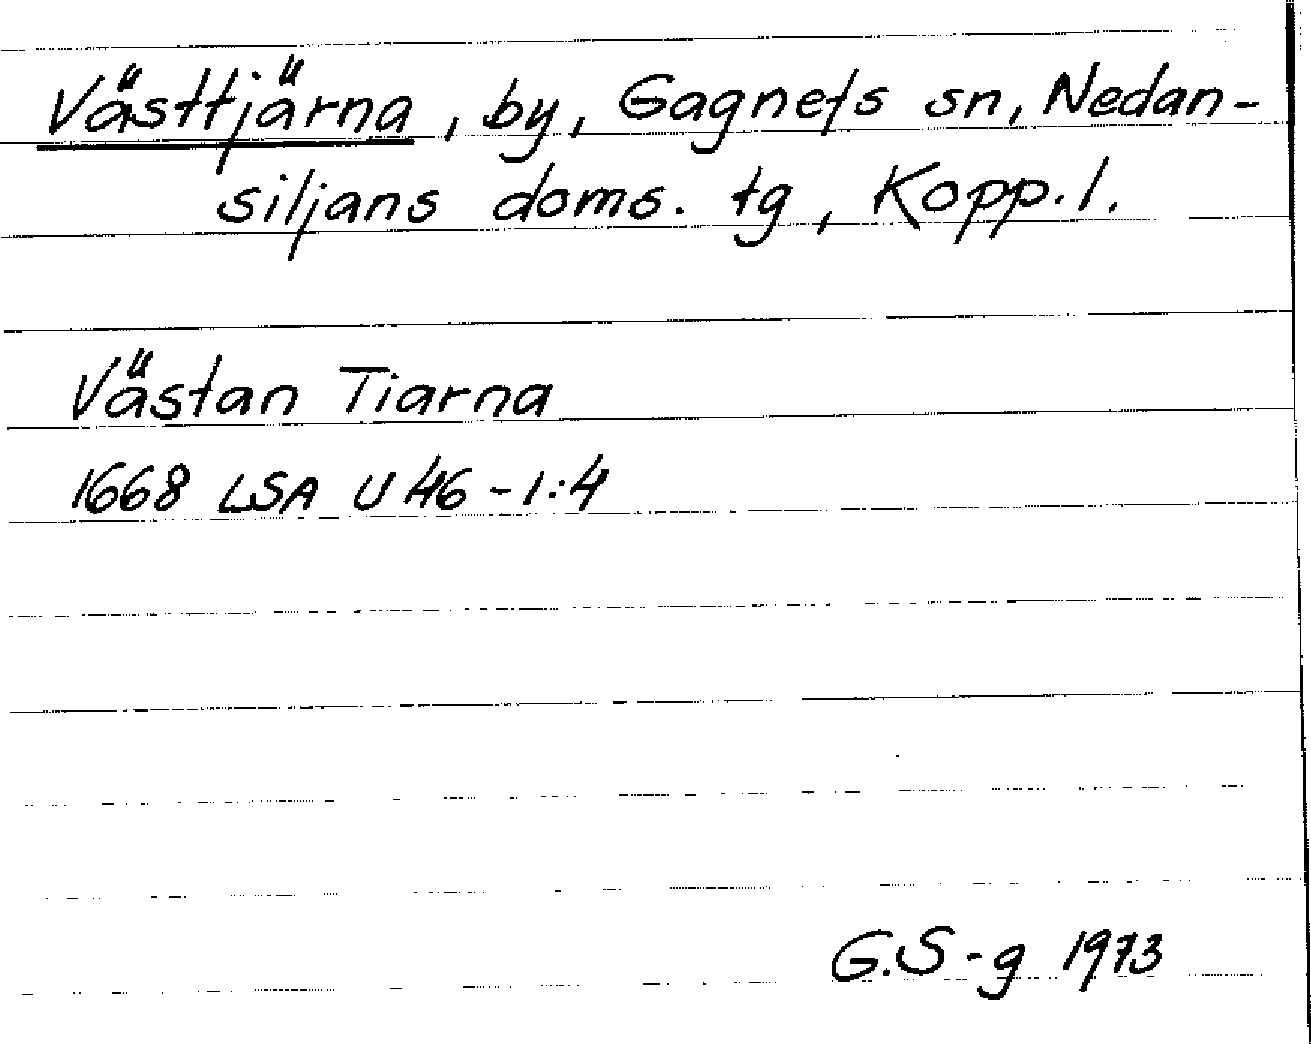 Västtjärna, by, Gagnefs sn, Nedan-
siljans doms. tg, Kopp. l.
Västan Tiarna
1668 LSA U 46 - 1:4
G.S-g 1973